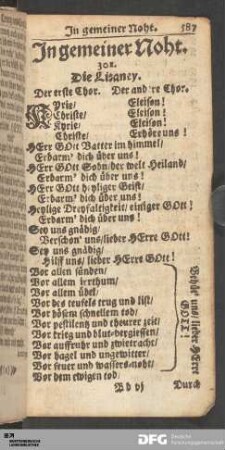 In gemeiner Noht. 587
In gemeiner Noht.
308.
Die Litaney.
Der erste Chor. Der andere Chor.
KYrie/ Eleison!
Christe/ Eleison!
Kyrie/ Eleison!
Christe/ Erhöre uns!
HErr GOtt Vatter im himmel/
Erbarm' dich über uns!
HErr GOtt Sohn/der welt Heiland/
Erbarm' dich über uns!
HErr GOtt heyliger Geist/
Erbarm' dich über uns!
Heylige Dreyfaltigkeit/ einiger GOtt!
Erbarm' dich über uns!
Sey uns gnädig/
Verschon' uns/lieber HErre GOtt!
Sey uns gnädig/
Hilff uns/ lieber HErre GOtt!
Vor allen sünden/
Vor allem irrthum/
Vor allem übel/
Vor des teufels trug und list/
Vor bösem schnellem tod/
Vor pestilentz und theurer zeit/
Vor krieg und blut-vergiessen/
Vor auffruhr und zwietracht/
Vor hagel und ungewitter/
Vor feuer und wassers-noht/
Vor dem ewigen tod/
Behüt' uns/ lieber HErre
GOTT!
Durch
DFG Deutsche
Forschungsgemeinschaft